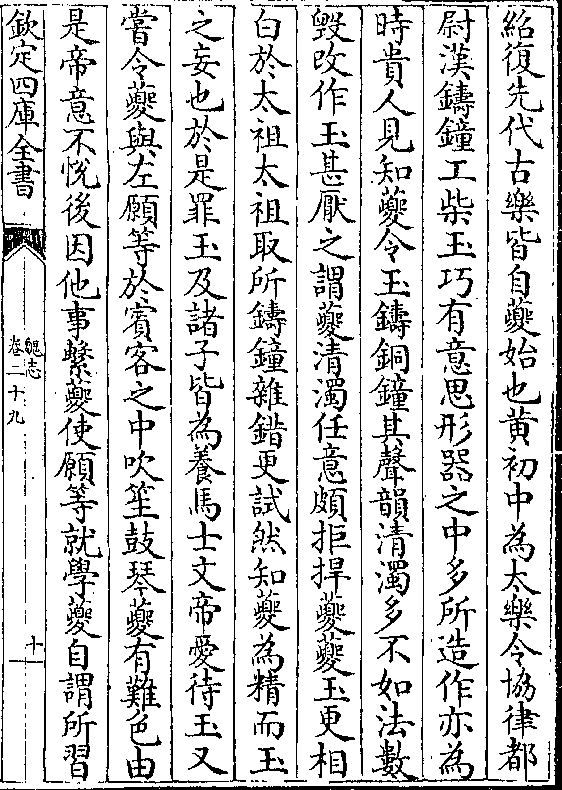 紹復先代古樂皆自夔始也黄初中為太樂令協律都
尉漢鑄鐘工柴玉巧有意思形器之中多所造作亦為
時貴人見知夔令玉鑄銅鐘其聲韻清濁多不如法數
毁改作玉甚厭之謂夔清濁任意頗拒捍夔夔玉更相
白於太祖太祖取所鑄鐘雜錯更試然知夔為精而玉
之妄也於是罪玉及諸子皆為養馬士文帝愛待玉又
嘗令夔與左願等於賓客之中吹笙鼓琴夔有難色由
是帝意不悅後因他事繫夔使願等就學夔自謂所習
欽定四庫全書
魏志
卷二十九
十